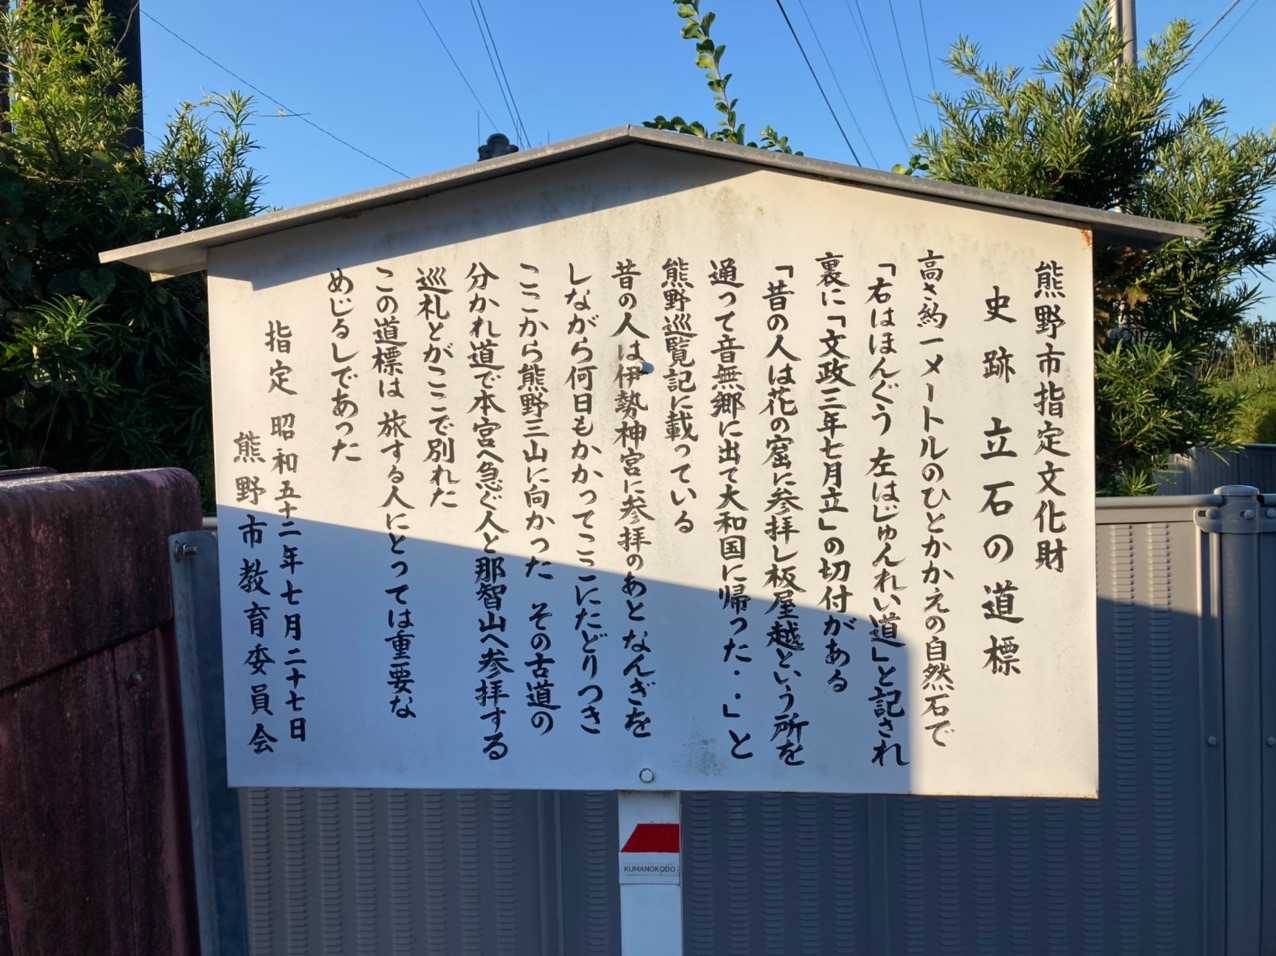 熊野市指定文化財
史跡 立石の道標
高さ約一メートルのひとかかえの自然石で
「右はほんぐう 左はじゅんれい道」と記され
裏に「文政三年七月立」の切付がある
「昔の人は花の窟に参拝し板屋越という所を
通って音無郷に出て大和国に帰った・・」と
熊野巡覧記に載っている
昔の人は伊勢神宮に参拝のあとなんぎを
しながら何日もかかってここにたどりつき
ここから熊野三山に向かった その古道の
分かれ道で本宮へ急ぐ人と那智山へ参拝する
巡礼とがここで別れた
この道標は 旅する人にとっては重要な
めじるしであった
指定 昭和五十二年七月二十七日
熊野市教育委員会
KUMANOKODO